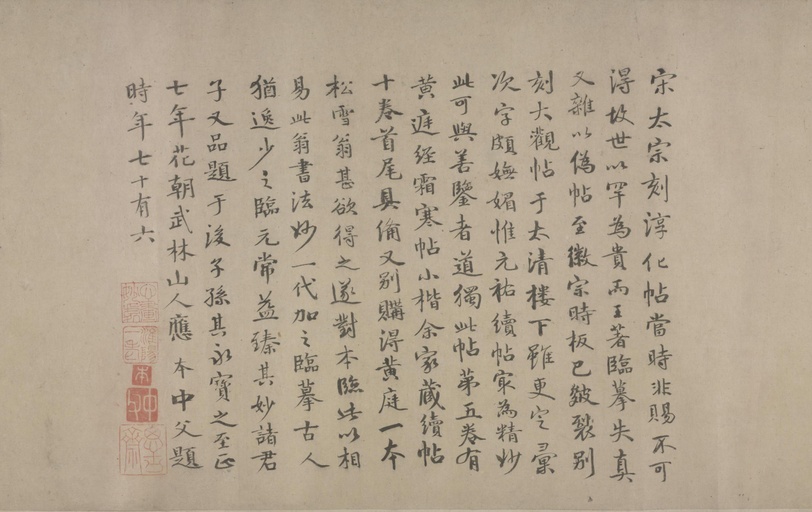 宋太宗刻淳化帖當時非賜不可
得故世以罕為貴而王著臨摹失真
又雜以偽帖至徽宗時板已皴裂別
刻大觀帖于太清楼下雖更定彙
次字頗嫵媚惟元祐續帖㝡為精妙
此可與善鑒者道獨此帖第五卷有
黄庭經霜寒帖小楷余家蔵續帖
十卷首尾具俻又別購得黄庭一本
松雪翁甚欲得之遂對本臨此以相
易此翁書法妙一代加之臨摹古人
猶逸少之臨元常益臻其妙諸君
子又品題于後子孫其永寶之至正
七年花朝武林山人應本中父題
時年七十有六
本
中